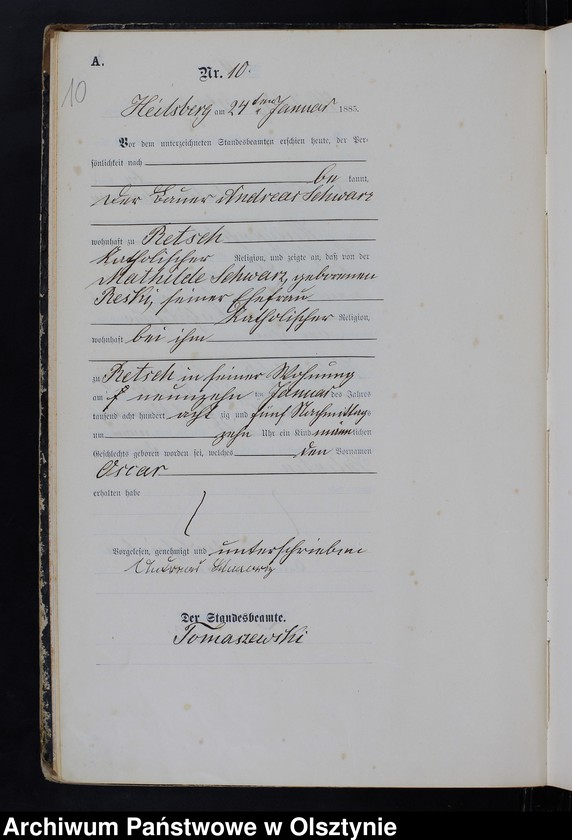 A.
10
Nr. 10.
Heilsberg am 24ten Januar 1885.
Vor dem unterzeichneten Standesbeamten erschien heute, der Per-
sönlichkeit nach
be kannt,
Der Bauer Andreas Schwarz
wohnhaft zu Retsch
katholischer Religion, und zeigte an, daß von der
Mathilde Schwarz, geborenen
Reski, seiner Ehefrau
katholischer Religion,
wohnhaft bei ihm
zu Retsch in seiner Wohnung
am neunzehn ten Januar des Jahres
tausend acht hundert acht zig und fünf Nachmittags
um zehn Uhr ein Kind männlichen
Geschlechts geboren worden sei, welches den Vornamen
Oscar
erhalten habe
Vorgelesen, genehmigt und unterschrieben
Andreas Schwarz
Der Standesbeamte.
Tomaszewski
Archiwum Państwowe w Olsztynie